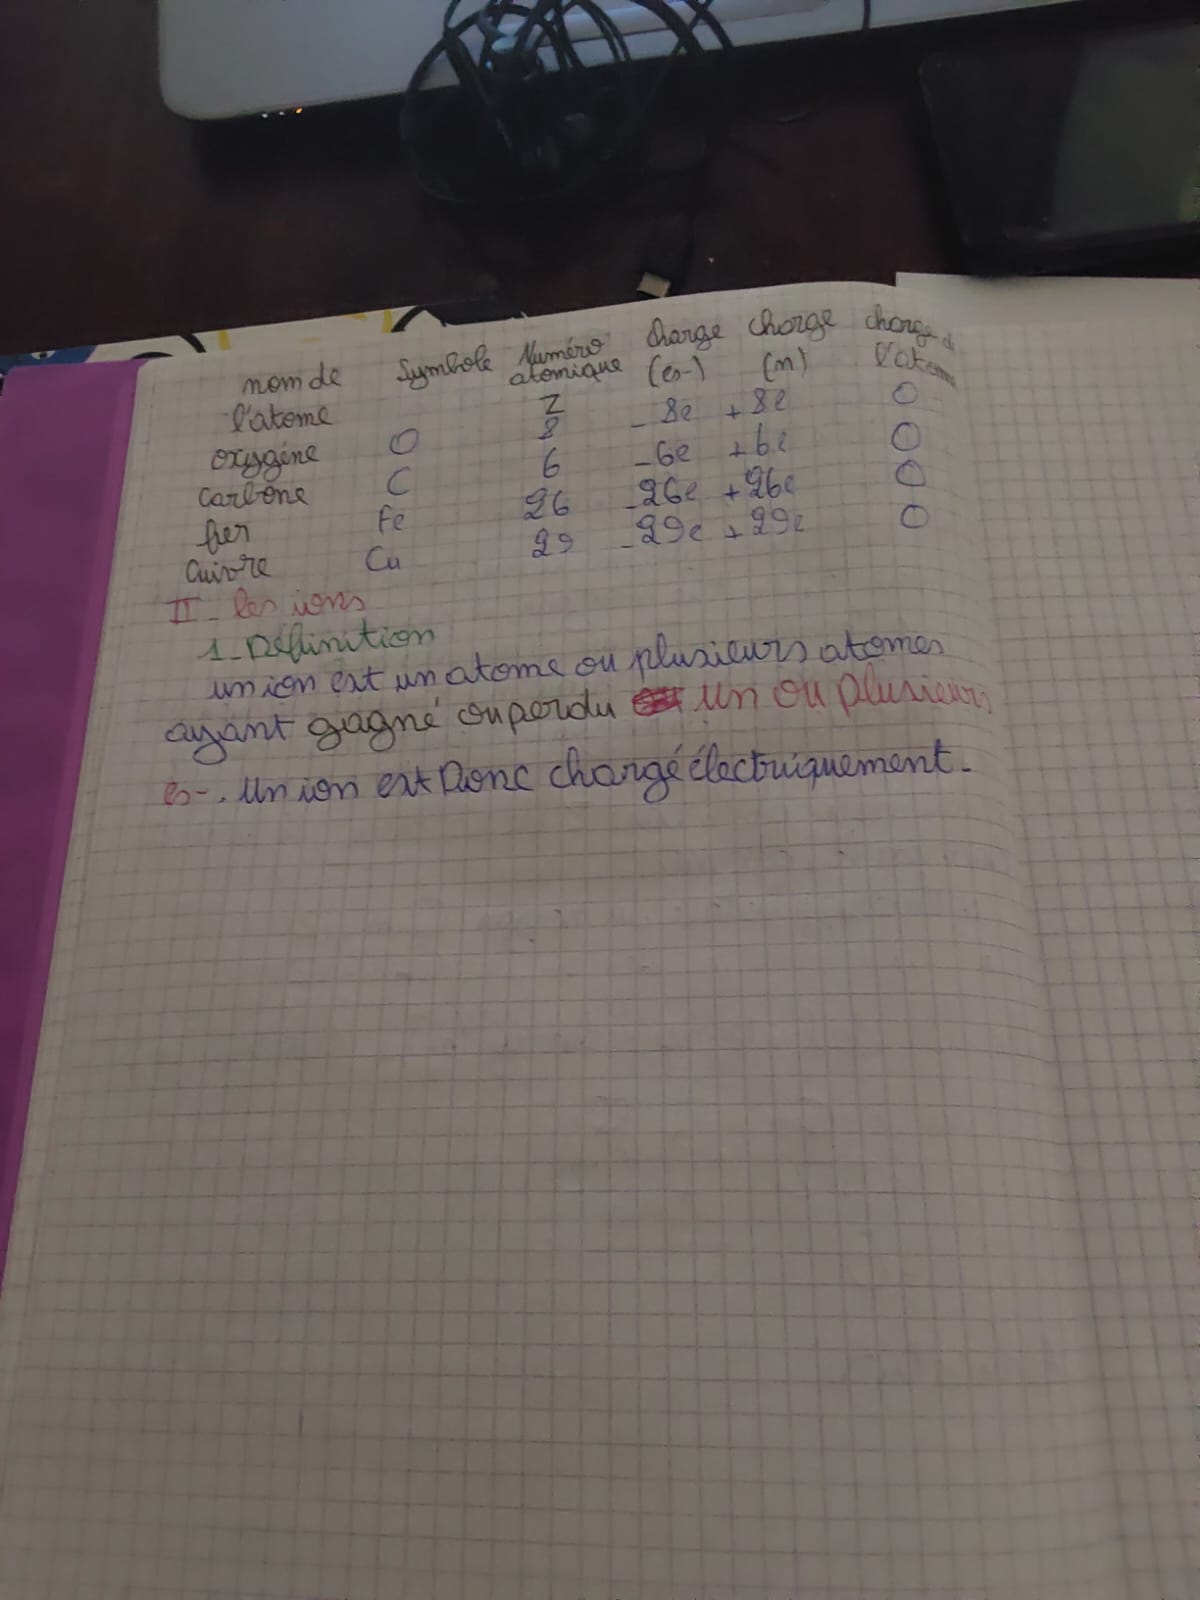 nom de Symbole Numéro charge charge charge d
l'atome atomique (es-) (n) l'atome
Z
oxygéne O 8 - 8e + 8e O
Carbone C 6 - 6e + 6e O
fer Fe 26 - 26e + 26e O
Cuivre Cu 29 - 29e + 29e O
II - les ions
1 - Définition
un ion est un atome ou plusieurs atomes
ayant gagné ou perdu un ou plusieurs
es- . Un ion est Donc chargé électriquement -